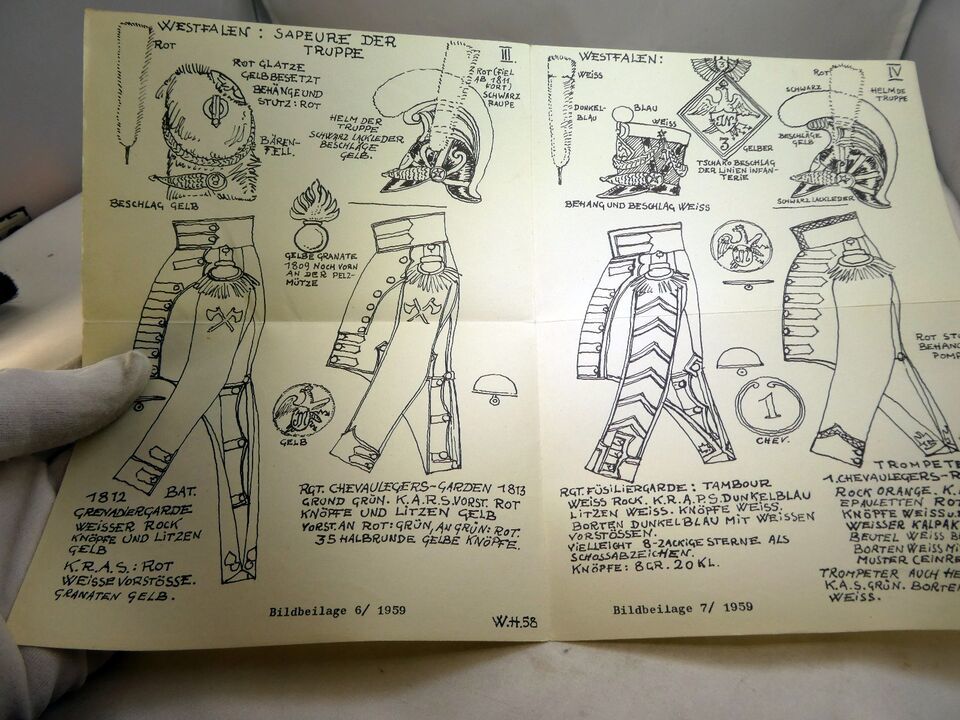 WESTFALEN: SAPEURE DER
TRUPPE
III
ROT
ROT GLATZE
GELB BESETZT
BEHÄNGE UND
STUTZ: ROT
BÄREN-
FELL.
BESCHLAG GELB
HELM DER
TRUPPE
SCHWARZ LACKLEDER
BESCHLÄGE
GELB.
ROT (FIEL
AB 1811
FORT)
SCHWARZ
RAUPE
GELBE GRANATE
1809 NOCH VORN
AN DER PELZ-
MÜTZE
GELB
1812 BAT.
GRENADIERGARDE
WEISSER ROCK
KNÖPFE UND LITZEN
GELB
K.R.A.S.: ROT
WEISSE VORSTÖSSE.
GRANATEN GELB.
RGT. CHEVAULEGERS-GARDEN 1813
GRUND GRÜN. K.A.R.S. VORST. ROT
KNÖPFE UND LITZEN GELB
VORST. AN ROT: GRÜN, AN GRÜN: ROT.
35 HALBRUNDE GELBE KNÖPFE.
Bildbeilage 6/ 1959
W.H.58
WESTFALEN:
IV
WEISS
DUNKEL-
BLAU
BLAU
WEISS
3
GELBER
TSCHAKO BESCHLAG
DER LINIEN INFAN-
TERIE
BEHANG UND BESCHLAG WEISS
ROT
SCHWARZ
HELM DE
TRUPPE
BESCHLÄGE
GELB
SCHWARZ LACKLEDER
ROT STO
BEHANG
POMP
1
CHEV.
RGT. FÜSILIERGARDE: TAMBOUR
WEISS ROCK. K.R.A.P.S. DUNKELBLAU
LITZEN WEISS. KNÖPFE WEISS.
BORTEN DUNKELBLAU MIT WEISSEN
VORSTÖSSEN.
VIELLEICHT 8-ZACKIGE STERNE ALS
SCHOSSABZEICHEN.
KNÖPFE: 8 GR. 20 KL.
TROMPETE
1. CHEVAULEGERS-R
ROCK ORANGE. K.
EPAULETTEN ROT
KNÖPFE WEISS U.
WEISSER KALPAK
BEUTEL WEISS BO
BORTEN WEISS MI
MUSTER (EINRE
TROMPETER AUCH HE
K.A.S. GRÜN. BORTEN
WEISS.
Bildbeilage 7/ 1959